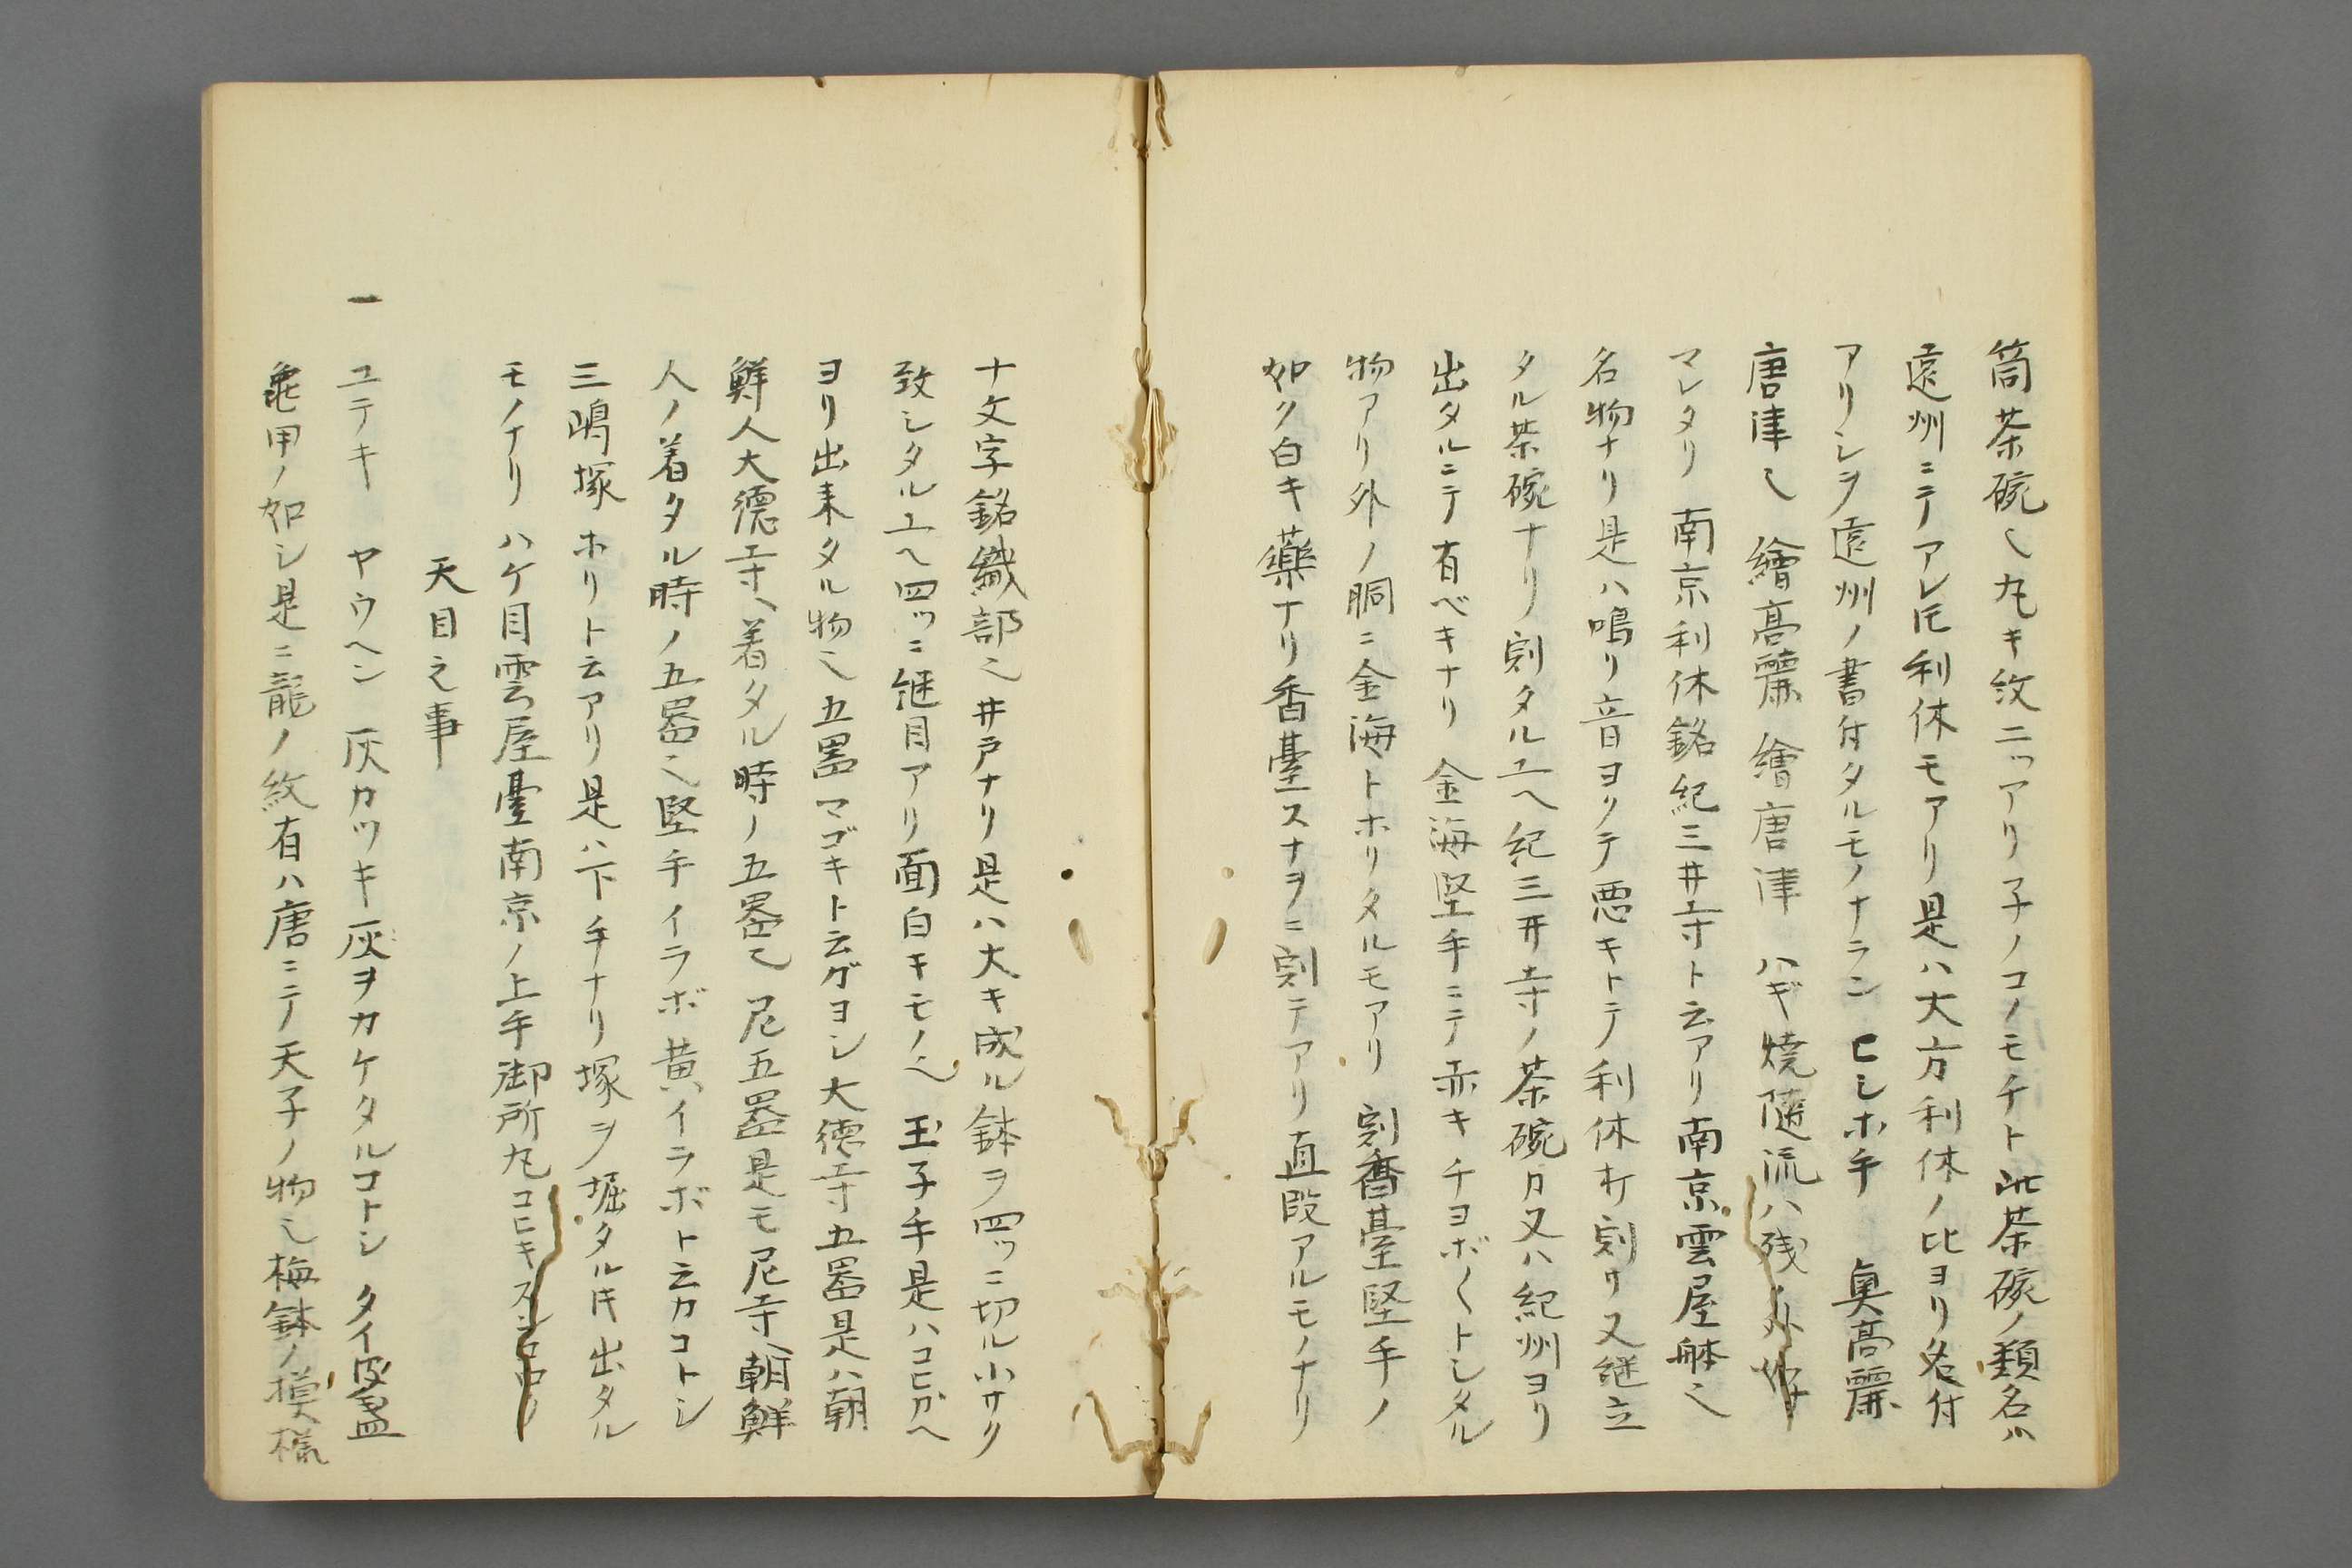 筒茶碗〆丸キ紋二ッアリ子ノコノモチト此茶碗ノ類名ハ
遠州ニテアレ𪜈利休モアリ是ハ大方利休ノ比ヨリ名付
アリシヲ遠州ノ書付タルモノナラン ヒシホ手 奥高麗
唐津〆 繪高麗 繪唐津 ハギ焼随流ハ残ノ外
マレタリ 南京利休銘紀三井寺ト云アリ南京雲屋躰〆
名物ナリ是ハ鳴リ音ヨクテ悪キトテ利休打割リ又継立
タル茶碗ナリ割タルユヘ紀三井寺ノ茶碗カ又ハ紀州ヨリ
出タルニテ有ベキナリ 金海堅手ニテ赤キチヨボ〱トシタル
物アリ外ノ胴ニ金海トホリタルモアリ 割香臺堅手ノ
如ク白キ藥ナリ香臺スナヲニ割テアリ直段アルモノナリ
十文字銘織部〆井戸ナリ是ハ大キ成ル鉢ヲ四ッニ切ル小サク
致シタルユヘ四ッニ継目アリ面白キモノ〆 玉子手是ハコヒガヘ
ヨリ出来タル物〆 五器マゴキト云ガヨシ大徳寺五器是ハ朝
鮮人大德寺ヘ着タル時ノ五器〆 尼五器是モ尼寺ヘ朝鮮
人ノ着タル時ノ五器〆堅手イラボ黄イラボト云カコトシ
三嶋塚ホリト云アリ是ハ下手ナリ塚ヲ堀タル𪜈出タル
モノナリ ハケ目雲屋臺南京ノ上手御所丸コヒキ
天目之事
一 ユテキ ヤウヘン 灰カツキ灰ヲカケタルコトシ タイ皮盞
龜甲ノ如シ是ニ龍ノ紋有ハ唐ニテ天子ノ物〆梅鉢ノ摸様